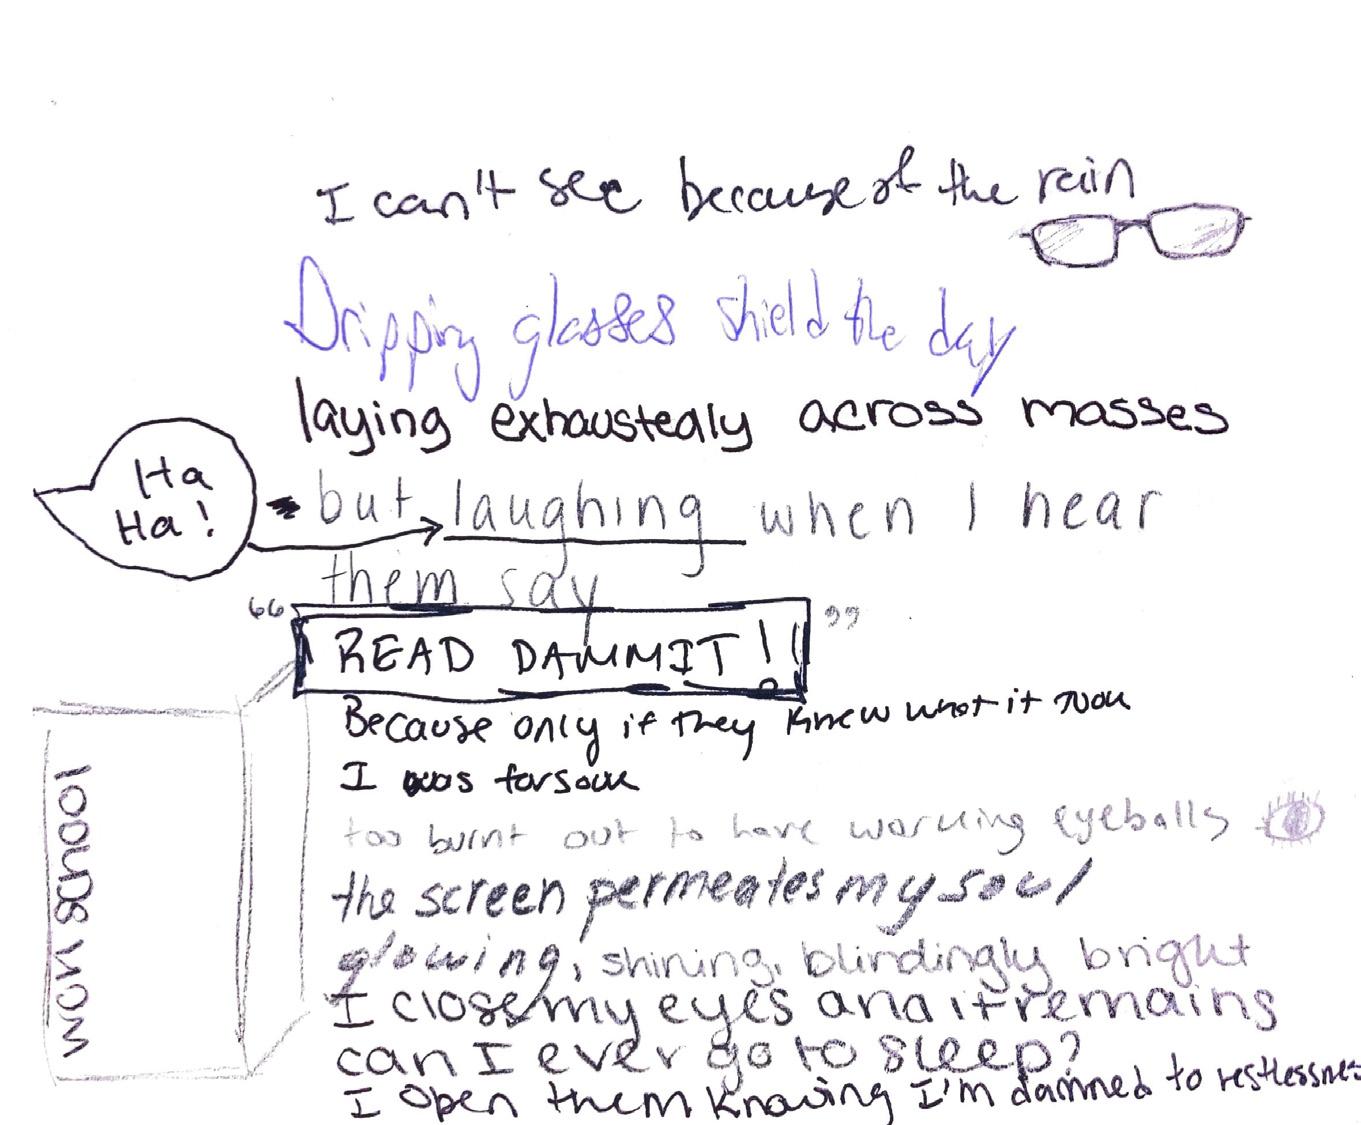 I can't see because of the rain
Dripping glasses shield the day
laying exhaustedly across masses
Ha
Ha!
but laughing when I hear
them say
“READ DAMMIT!!”
Because only if they knew what it took
I was forsook
too burnt out to have working eyeballs
the screen permeates my soul
glowing, shining, blindingly bright
I close my eyes and it remains
can I ever go to sleep?
I open them knowing I'm damned to restlessness